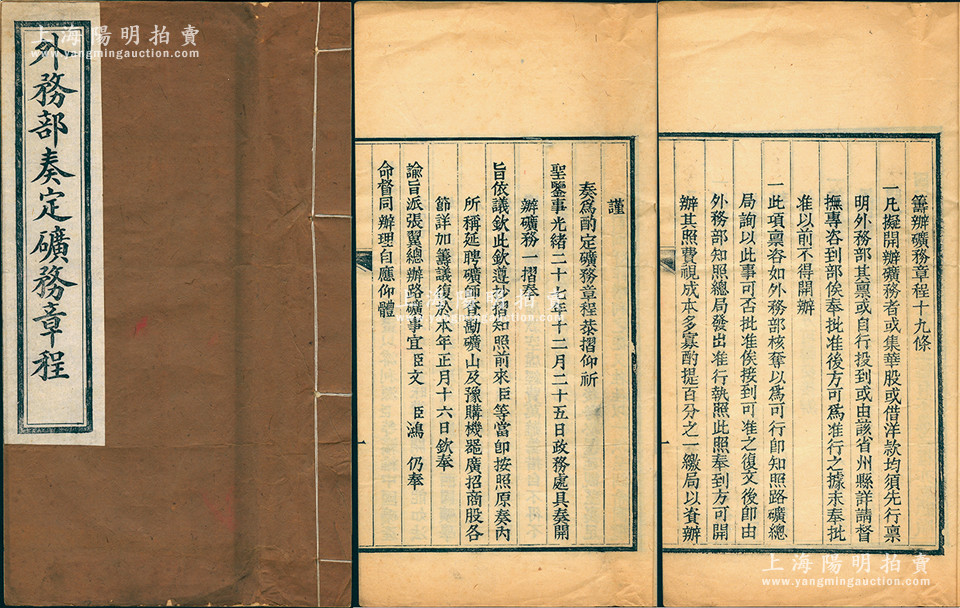 上海陽明拍賣
www.yangmingauction.com
外務部奏定礦務章程
謹
奏爲酌定礦務章程恭摺仰祈
聖鑒事光緒二十七年十二月二十五日政務處具奏開
辦礦務一摺奉
旨依議欽此欽遵抄摺知照前來臣等當卽按照原奏內
所稱延聘礦師查勘礦山及豫購機器廣招商股各
節詳加籌議復於本年正月十六日欽奉
諭旨派張翼總辦路礦事宜臣文 臣鴻 仍奉
命督同辦理自應仰體
一
籌辦礦務章程十九條
一凡擬開辦礦務者或集華股或借洋款均須先行稟
明外務部其稟或自行投到或由該省州縣詳請督
撫專咨到部俟奉批准後方可爲准行之據未奉批
准以前不得開辦
一此項稟咨如外務部核奪以爲可行卽知照路礦總
局詢以此事可否批准俟接到可准之復文後卽由
外務部知照總局發出准行執照此照奉到方可開
辦其照費視成本多寡酌提百分之一繳局以資辦
一
上海陽明拍賣
www.yangmingauction.com